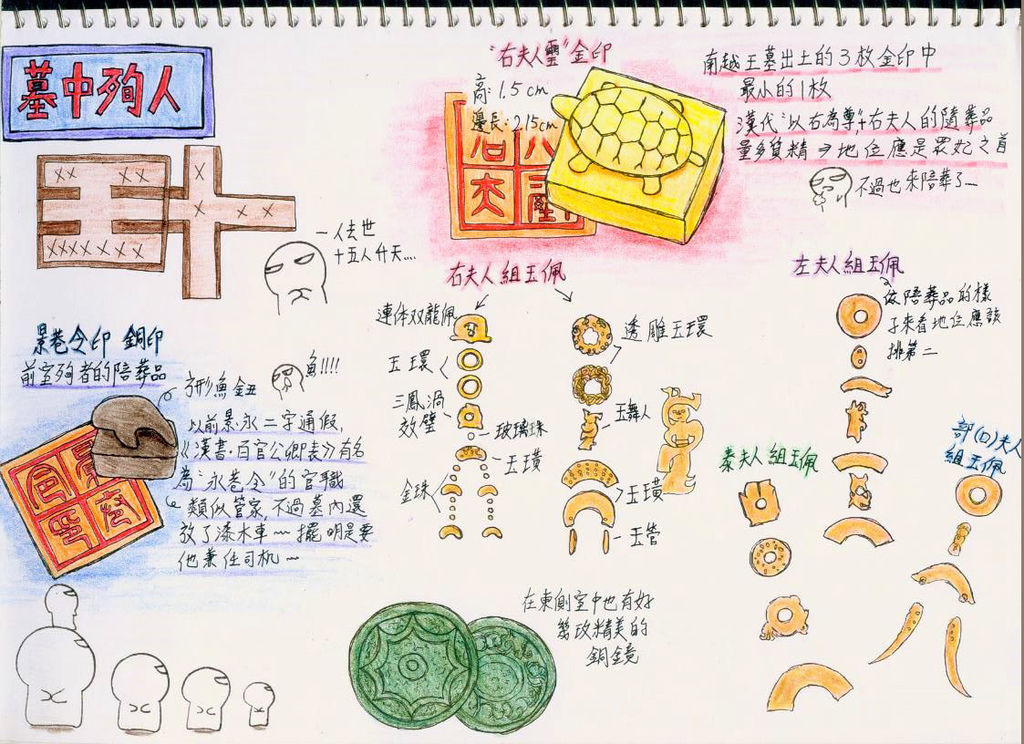 墓中殉人
一人去世
十五人升天....
"右夫人璽"金印
高: 1.5cm
邊長: 2.15cm
南越王墓出土的3枚金印中
最小的1枚
漢代"以右為尊"+右夫人的隨葬品
量多質精⇒地位應是眾妃之首
不過也來陪葬了....
景巷令印 銅印
前室殉者的陪葬品
魚!!!!
方形魚鈕
以前景.永二字通假,
《漢書·百官公卿表》有名
為"永巷令"的官職
類似管家,不過墓內還
放了漆木車~~擺明是要
他兼任司机~
右夫人組玉佩
連体双龍佩
玉環
三鳳渦
效璧
玻璃珠
玉璜
金珠
透雕玉環
玉舞人
玉璜
玉管
左夫人組玉佩
依陪葬品的樣
子來看地位應該
排第二
泰夫人組玉佩
部(口)夫人
組玉佩
在東側室中也有好
幾玫精美的
銅鏡